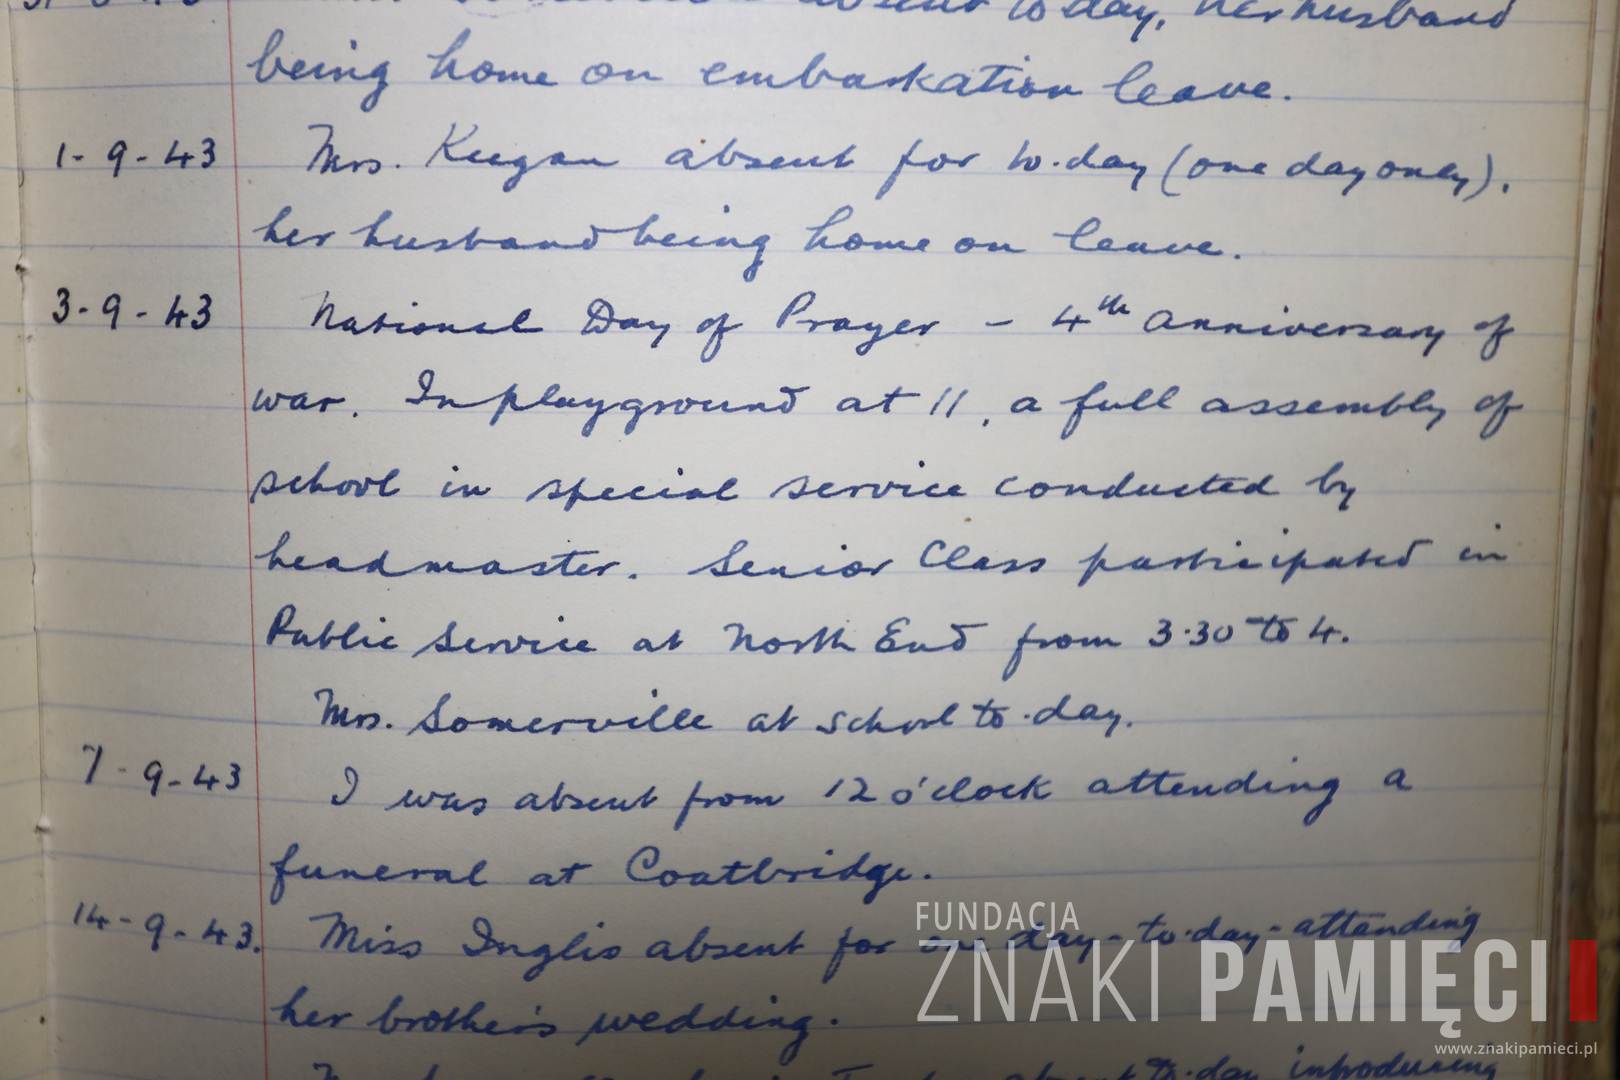 absent to day, her husband
being home on embarkation leave.
1-9-43 Mrs. Keegan absent for to-day (one day only),
her husband being home on leave.
3-9-43 National Day of Prayer - 4th anniversary of
war. In playground at 11, a full assembly of
school in special service conducted by
headmaster. Senior Class participated in
Public Service at North End from 3.30 to 4.
Mrs. Somerville at school to-day.
7-9-43 I was absent from 12 o'clock attending a
funeral at Coatbridge.
14-9-43. Miss Inglis absent for one day - to-day - attending
her brother's wedding.
absent to-day introducing
FUNDACJA
ZNAKI PAMIĘCI
www.znakipamieci.pl